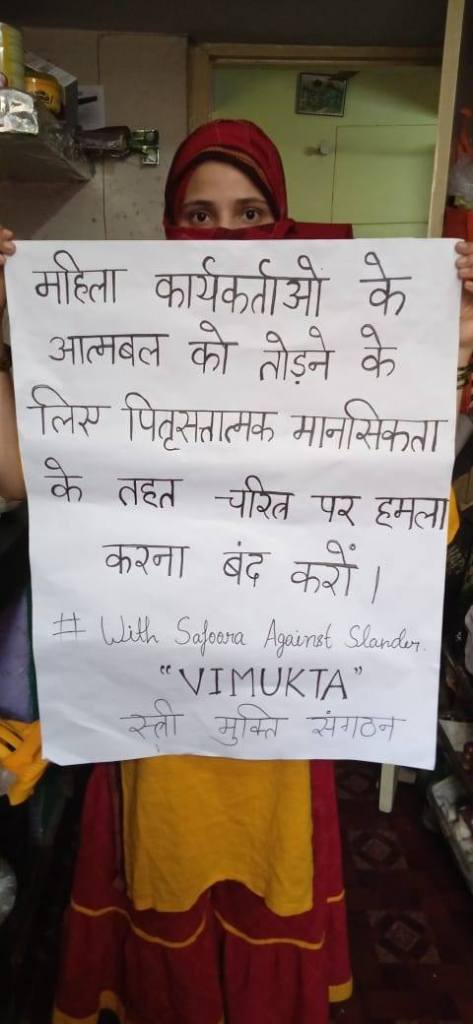 महिला कार्यकर्ताओं के
आत्मबल को तोड़ने के
लिए पितृसत्तात्मक मानसिकता
के तहत चरित्र पर हमला
करना बंद करों।
# With Safoora Against Slander.
"VIMUKTA"
स्त्री मुक्ति संगठन